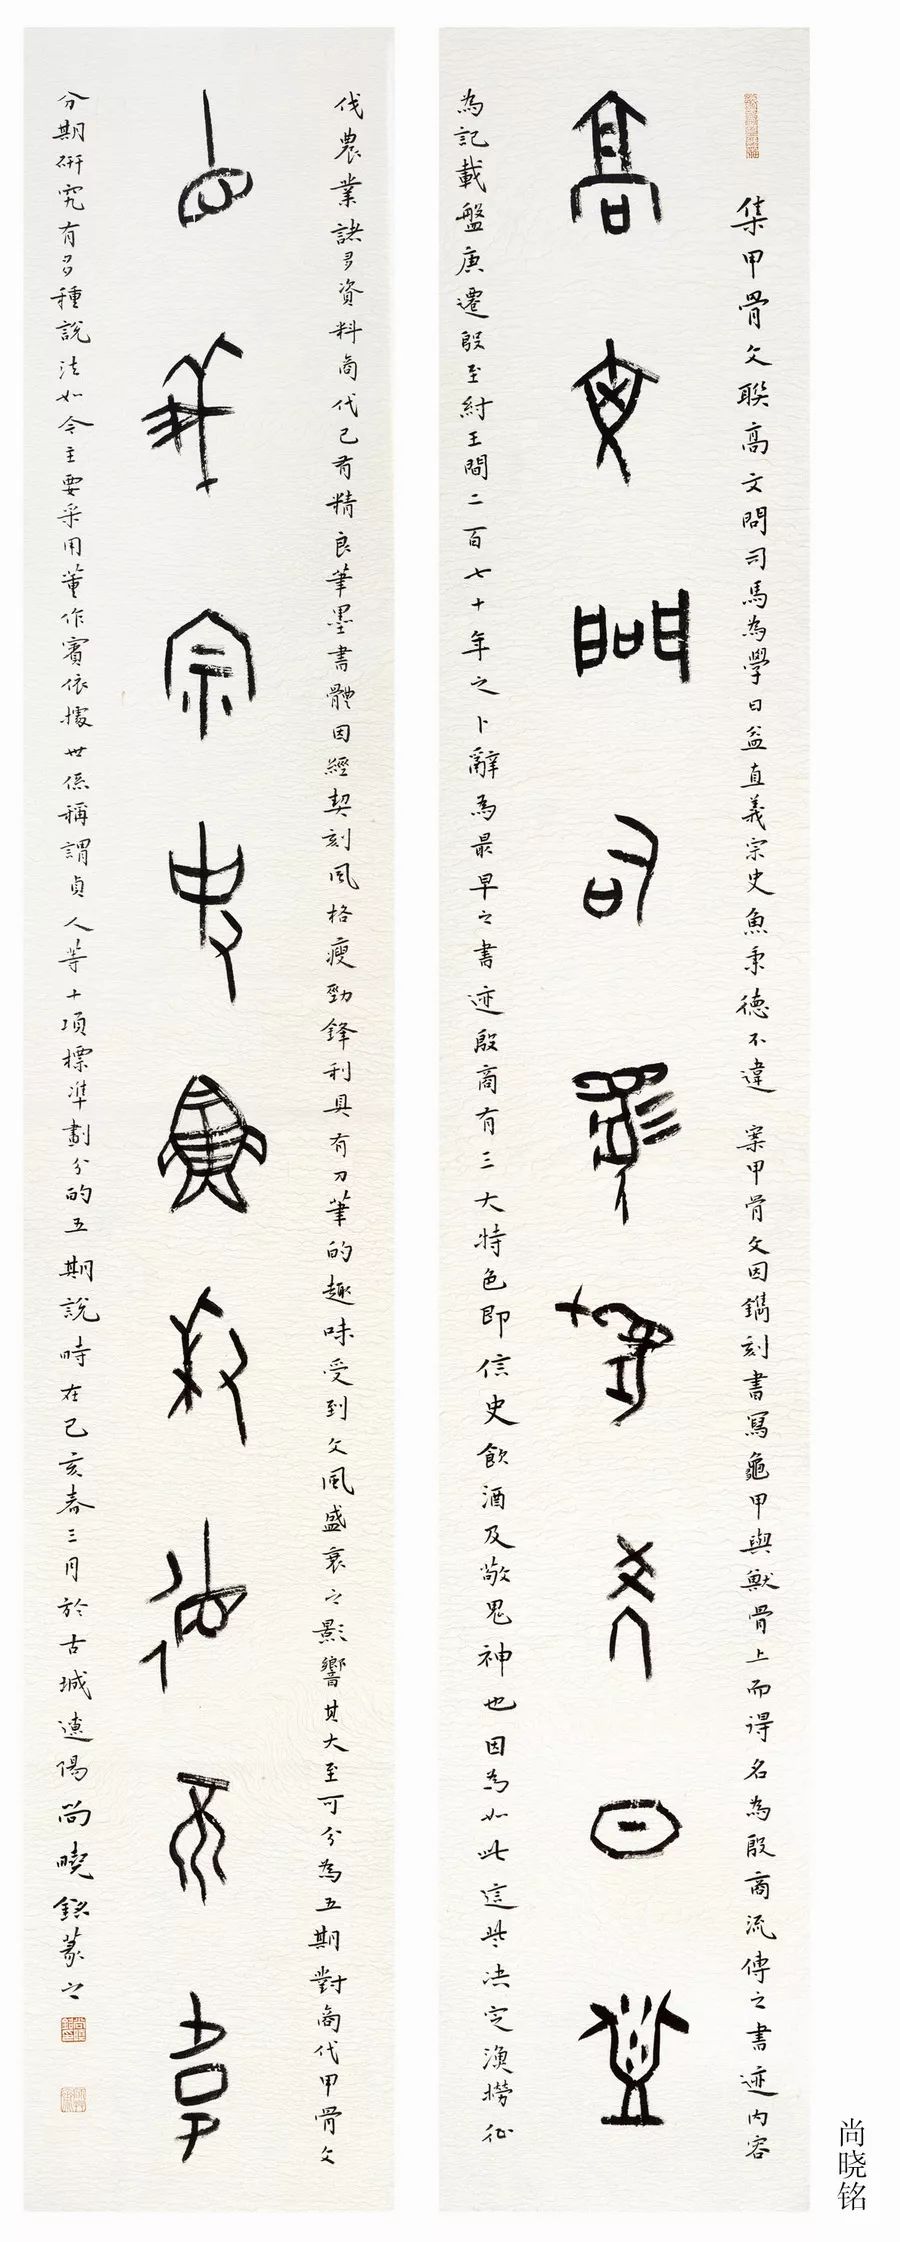 集甲骨文聯高文問司馬為學日益直義宗史魚秉德不違 案甲骨文因鐫刻書寫龜甲與獸骨上而得名為殷商流傳之書迹内容
高文問司馬為學日益
為記載盤庚遷殷至紂王間二百七十年之卜辭為最早之書迹殷商有三大特色即信史飲酒及敬鬼神也因為如此這些決定漁撈征
伐農業諸多資料商代已有精良筆墨書體因經契刻風格瘦勁鋒利具有刀筆的趣味受到文風盛衰之影響其大至可分為五期對商代甲骨文
直義宗史魚秉德不違
分期研究有多種說法如今主要采用董作賓依據世係稱謂貞人等十項標準劃分的五期說時在己亥春三月於古城遼陽尚曉銘篆之
尚晓铭